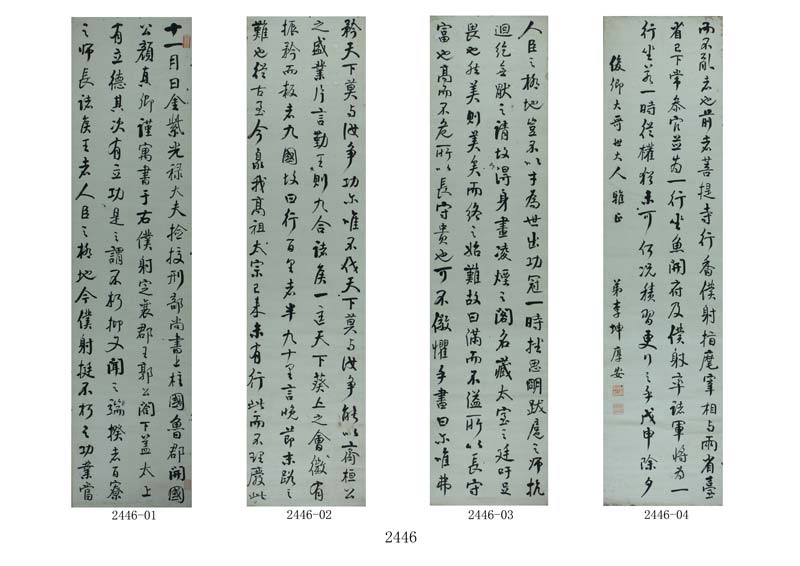 十一月日金紫光祿大夫撿挍刑部尚書上柱國魯郡開國
公顏真卿謹寓書于右僕射定襄郡王郭公閣下蓋太上
有立德其次有立功是之謂不朽抑又聞之端揆者百寮
之師長諸侯王者人臣之極地今僕射挺不朽之功業當
2446-01
矜天下莫与汝爭功尔唯不伐天下莫与汝爭能以齊桓公
之盛業片言勤王則九合諸侯一匡天下葵丘之會微有
振矜而叛者九國故曰行百里者半九十里言晚節末路之
難也從古至今泉我高祖太宗已來未有行此而不理廢此
2446-02
人臣之極地豈不以才為世出功冠一時挫思明跋扈之師抗
迴紇無猒之請故得身畫凌煙之閣名藏太室之廷吁足
畏也然美則美矣而終之始難故曰滿而不溢所以長守
富也高而不危所以長守貴也可不儆懼乎書曰尔唯弗
2446-03
而不亂者也前者菩提寺行香僕射指麾宰相与兩省臺
省已下常參官並為一行坐魚開府及僕射率諸軍將為一
行坐若一時從權猶未可何況積習更行之乎戊申除夕
俊卿大哥世大人雅正
弟李坤厚安
2446-04
2446